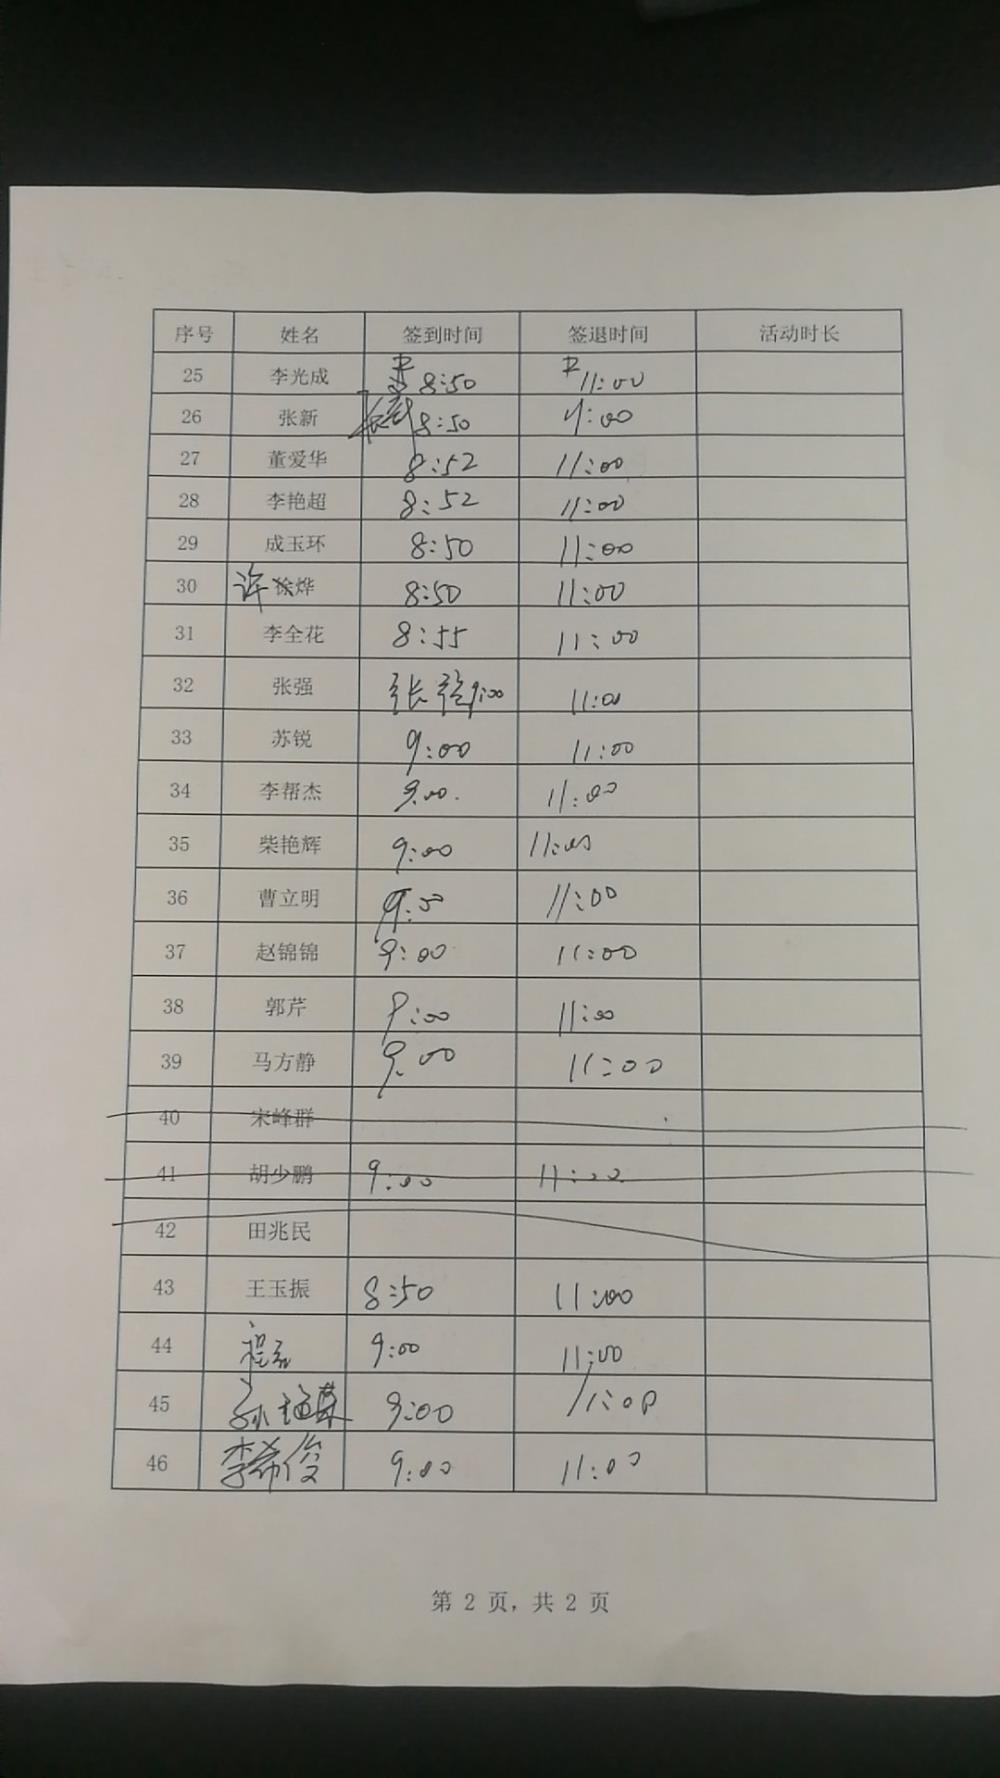 序号 姓名 签到时间 签退时间 活动时长
25 李光成 8:50 11:00
26 张新 张新 8:50 11:00
27 董爱华 8:52 11:00
28 李艳超 8:52 11:00
29 成玉环 8:50 11:00
30 许 徐烨 8:50 11:00
31 李全花 8:55 11:00
32 张强 张强 9:00 11:00
33 苏锐 9:00 11:00
34 李帮杰 9:00 11:00
35 柴艳辉 9:00 11:00
36 曹立明 9:00 11:00
37 赵锦锦 9:00 11:00
38 郭芹 9:00 11:00
39 马方静 9:00 11:00
40 宋峰群
41 胡少鹏 9:00 11:00
42 田兆民
43 王玉振 8:50 11:00
44 9:00 11:00
45 9:00 11:00
46 李希俊 9:00 11:00
第 2 页，共 2 页